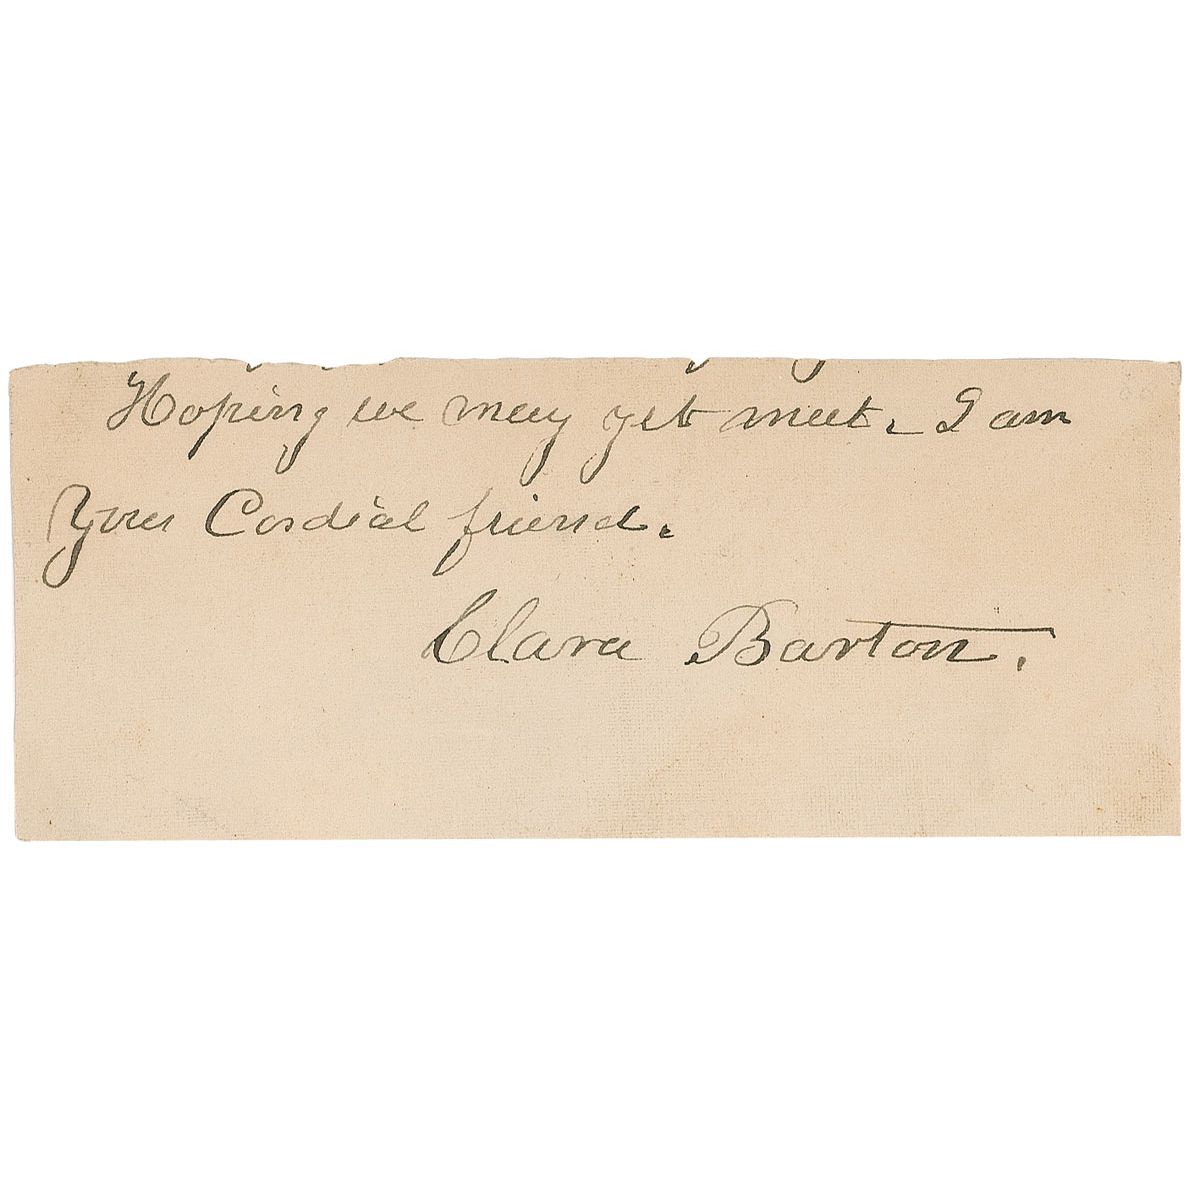 Hoping we may yet meet. I am
Your Cordial friend.
Clara Barton.